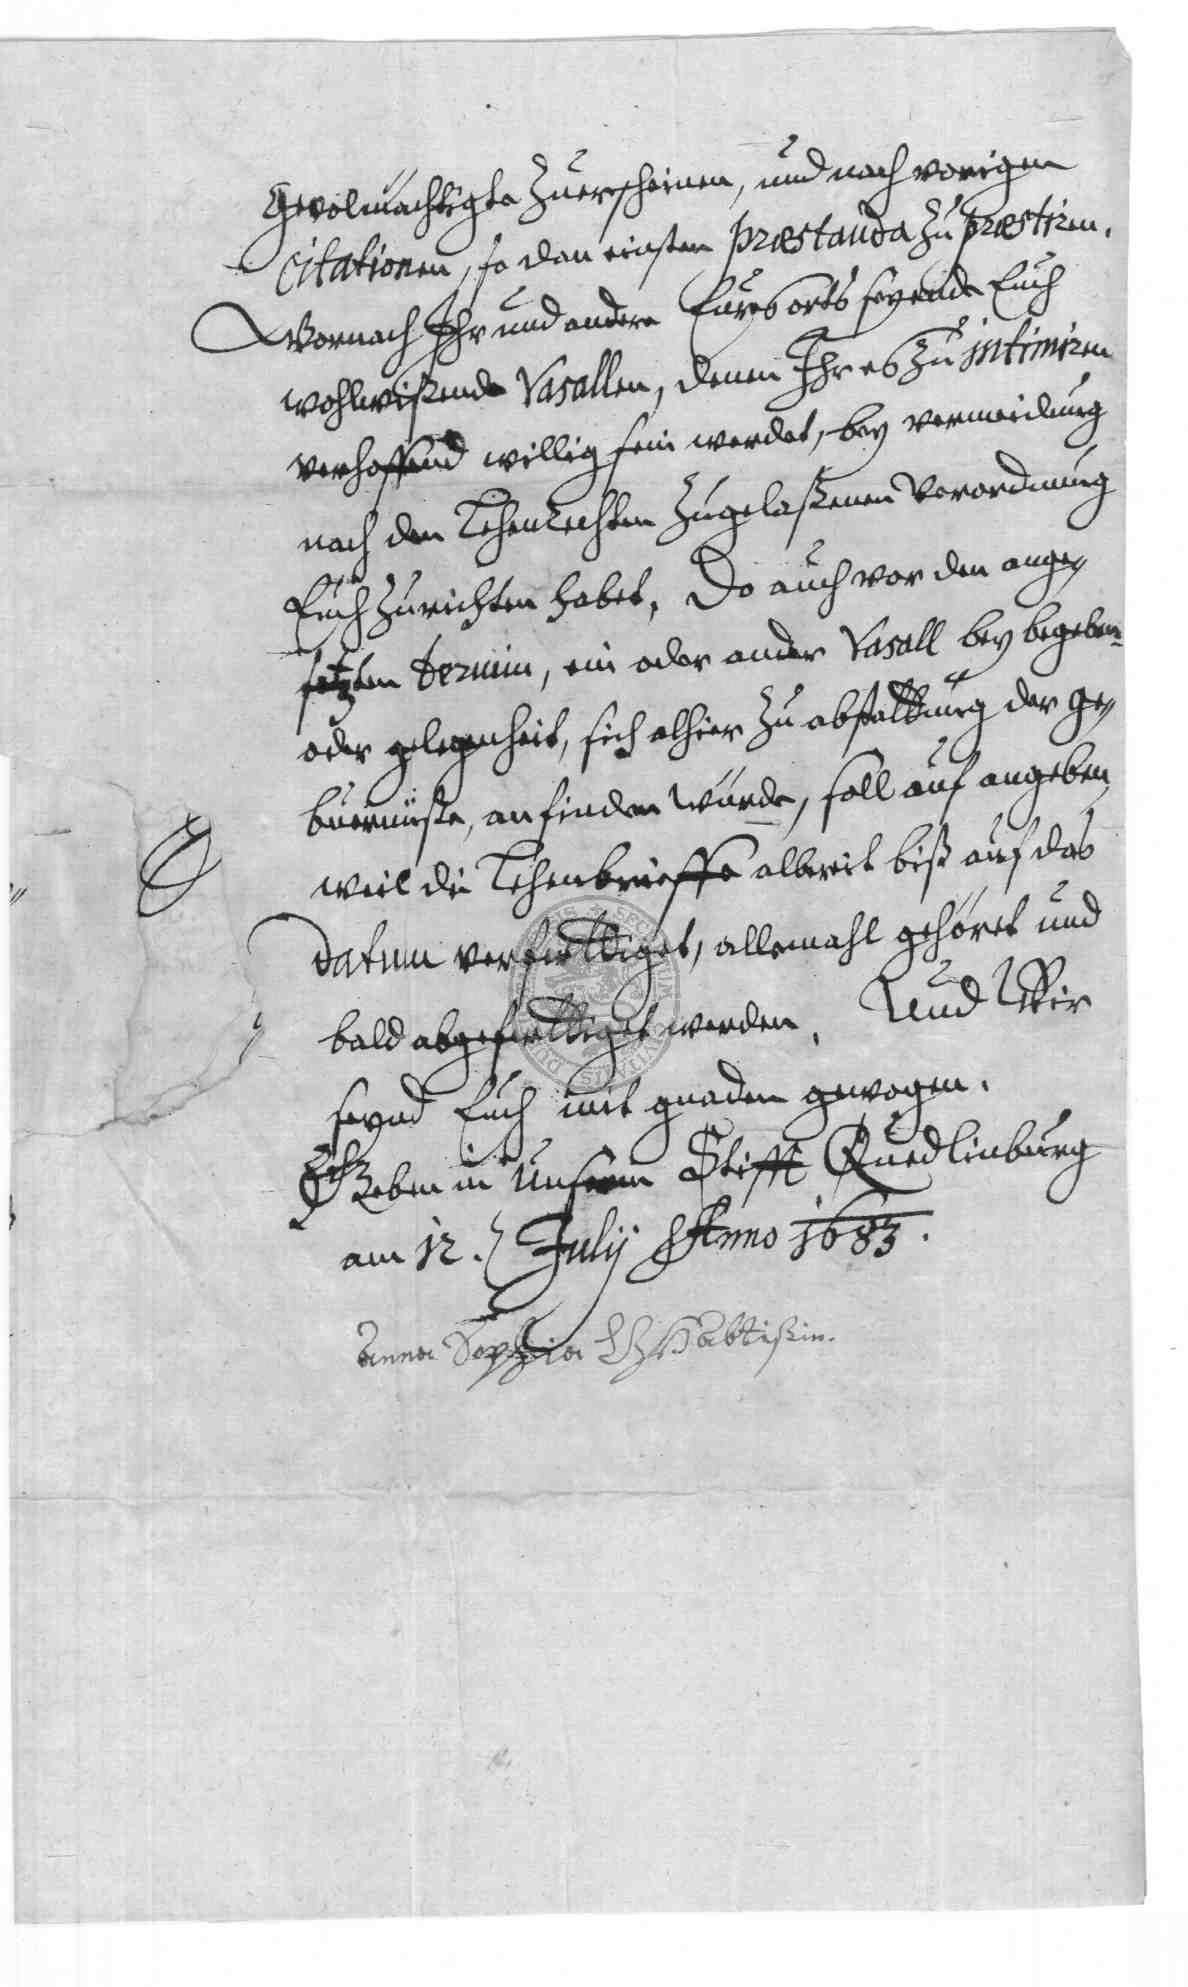 Gevolmächtigte zuerscheinen, und nach vorigen
Citationen, so dan einsten præstanda zu præstiren.
Wornach Ihr und andere Eures orts seyende Euch
wohlwißende Vasallen, denen Ihr es zu intimiren
verhoffend willig sein werdet, bey vermeidung
nach den Lehenrechten zugelaßenen Verordnung
Euch zurichten habet, Do auch vor den ange,
setzten termin, ein oder ander Vasall bey begeben-
oder gelegenheit, sich alhier zu abstattung der Ge,
buernüße, anfinden würde, soll auf angeben,
weil die Lehenbrieffe albereit biß auf das
datum verfertiget, allemahl gehöret und
bald abgefertiget werden. Und Wir
seynd Euch mit gnaden gewogen.
Geben in Unserm Stifft Quedlinburg
am 12. Julij Anno 1683.
Anna Sophia Äbtißin.